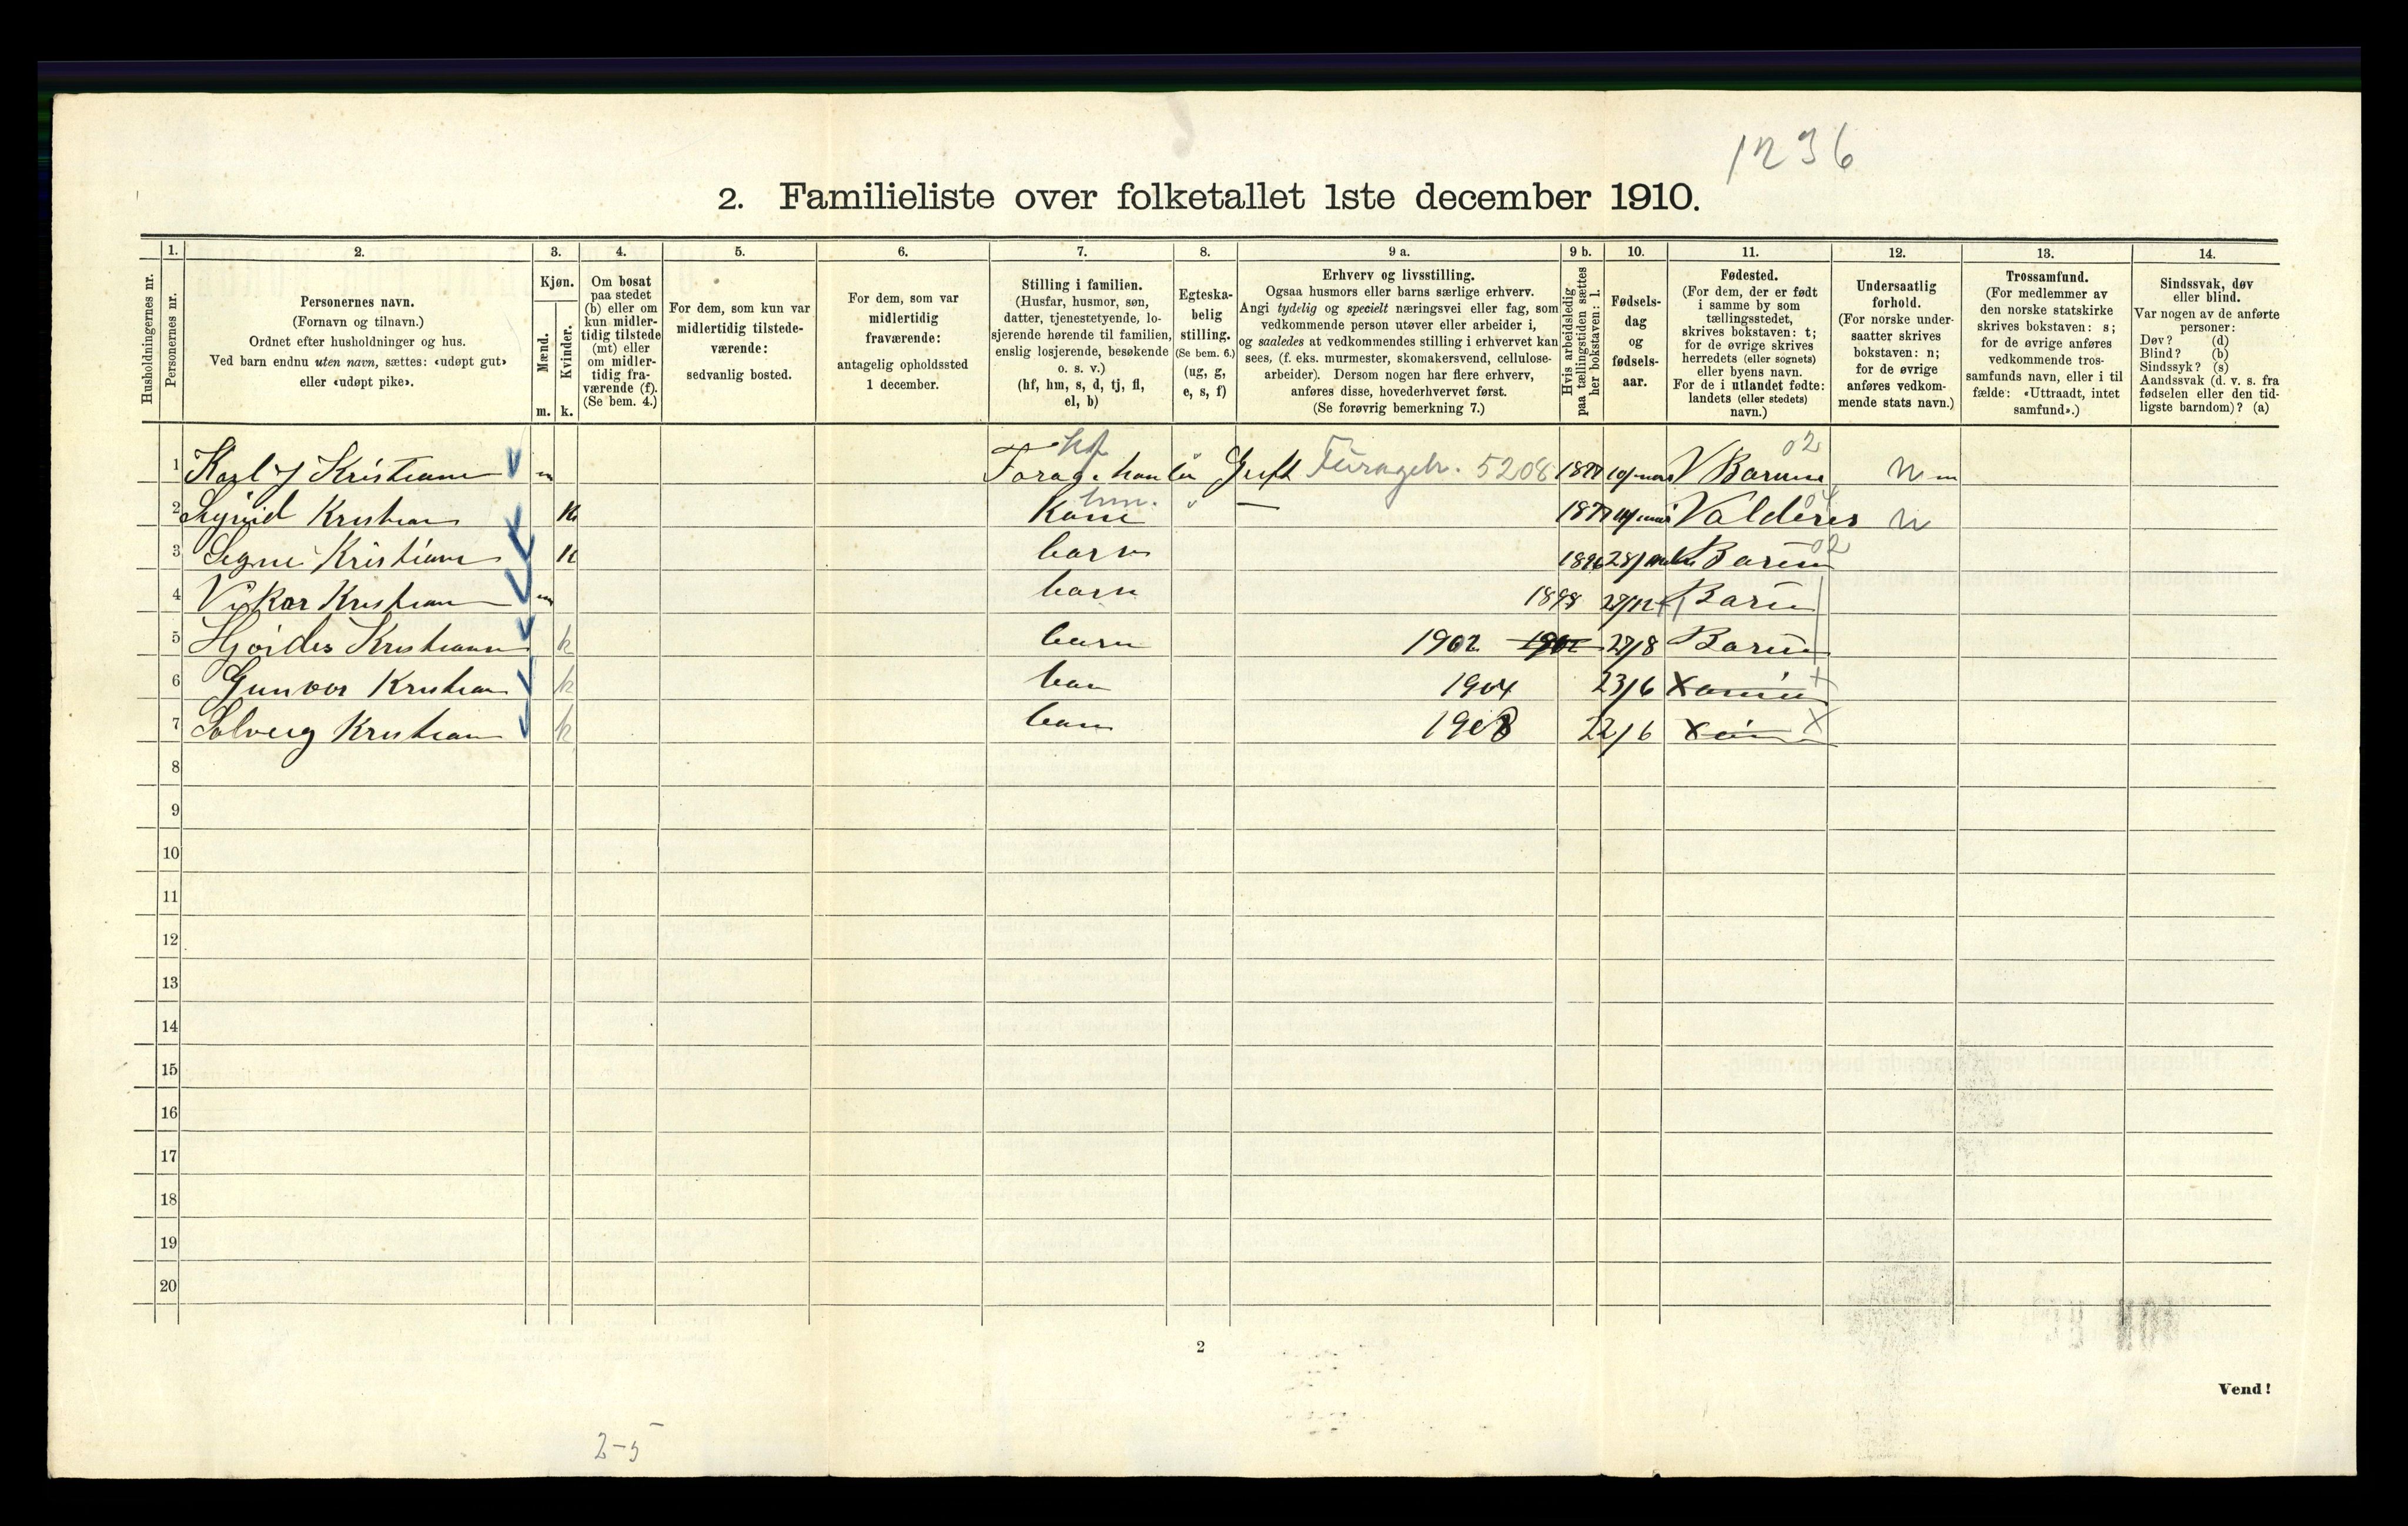 1236
2. Familieliste over folketallet 1ste december 1910.
Husholdningernes nr.
1. Personernes nr.
2. Personernes navn.
(Fornavn og tilnavn.)
Ordnet efter husholdninger og hus.
Ved barn endnu uten navn, sættes: «udøpt gut»
eller «udøpt pike».
3. Kjøn.
Mænd. m.
Kvinder. k.
4. Om bosat
paa stedet
(b) eller om
kun midler-
tidig tilstede
(mt) eller
om midler-
tidig fra-
værende (f).
(Se bem. 4.)
5. For dem, som kun var
midlertidig tilstede-
værende:
sedvanlig bosted.
6. For dem, som var
midlertidig
fraværende:
antagelig opholdssted
1 december.
7. Stilling i familien.
(Husfar, husmor, søn,
datter, tjenestetyende, lo-
sjerende hørende til familien,
enslig losjerende, besøkende
o. s. v.)
(hf, hm, s, d, tj, fl,
el, b)
8. Egteska-
belig
stilling.
(Se bem. 6.)
(ug, g,
e, s, f)
9 a. Erhverv og livsstilling.
Ogsaa husmors eller barns særlige erhverv.
Angi tydelig og specielt næringsvei eller fag, som
vedkommende person utøver eller arbeider i,
og saaledes at vedkommendes stilling i erhvervet kan
sees, (f. eks. murmester, skomakersvend, cellulose-
arbeider). Dersom nogen har flere erhverv,
anføres disse, hovederhvervet først.
(Se forøvrig bemerkning 7.)
9 b. Hvis arbeidsledig
paa tællingstiden sættes
her bokstaven: l.
10. Fødsels-
dag
og
fødsels-
aar.
11. Fødested.
(For dem, der er født
i samme by som
tællingsstedet,
skrives bokstaven: t;
for de øvrige skrives
herredets (eller sognets)
eller byens navn.
For de i utlandet fødte:
landets (eller stedets)
navn.)
12. Undersaatlig
forhold.
(For norske under-
saatter skrives
bokstaven: n;
for de øvrige
anføres vedkom-
mende stats navn.)
13. Trossamfund.
(For medlemmer av
den norske statskirke
skrives bokstaven: s;
for de øvrige anføres
vedkommende tros-
samfunds navn, eller i til
fælde: «Uttraadt, intet
samfund».)
14. Sindssvak, døv
eller blind.
Var nogen av de anførte
personer:
Døv? (d)
Blind? (b)
Sindssyk? (s)
Aandssvak (d. v. s. fra
fødselen eller den tid-
ligste barndom)? (a)
hf 02
1 Karl J Kristians m Gift 5208 n
hm. 04
2 Kristian k Kone " — Valders n
02
3 Signe Kristians k barn 1896
4 Kristian m barn 1898
5 Kristians k barn 1902 27/8
6 Gunvor Kristian k 1904 23/6 x
7 Solveig Kristian k 1908 22/6 x
8
9
10
11
12
13
14
15
16
17
18
19
20
2
Vend!
2-5